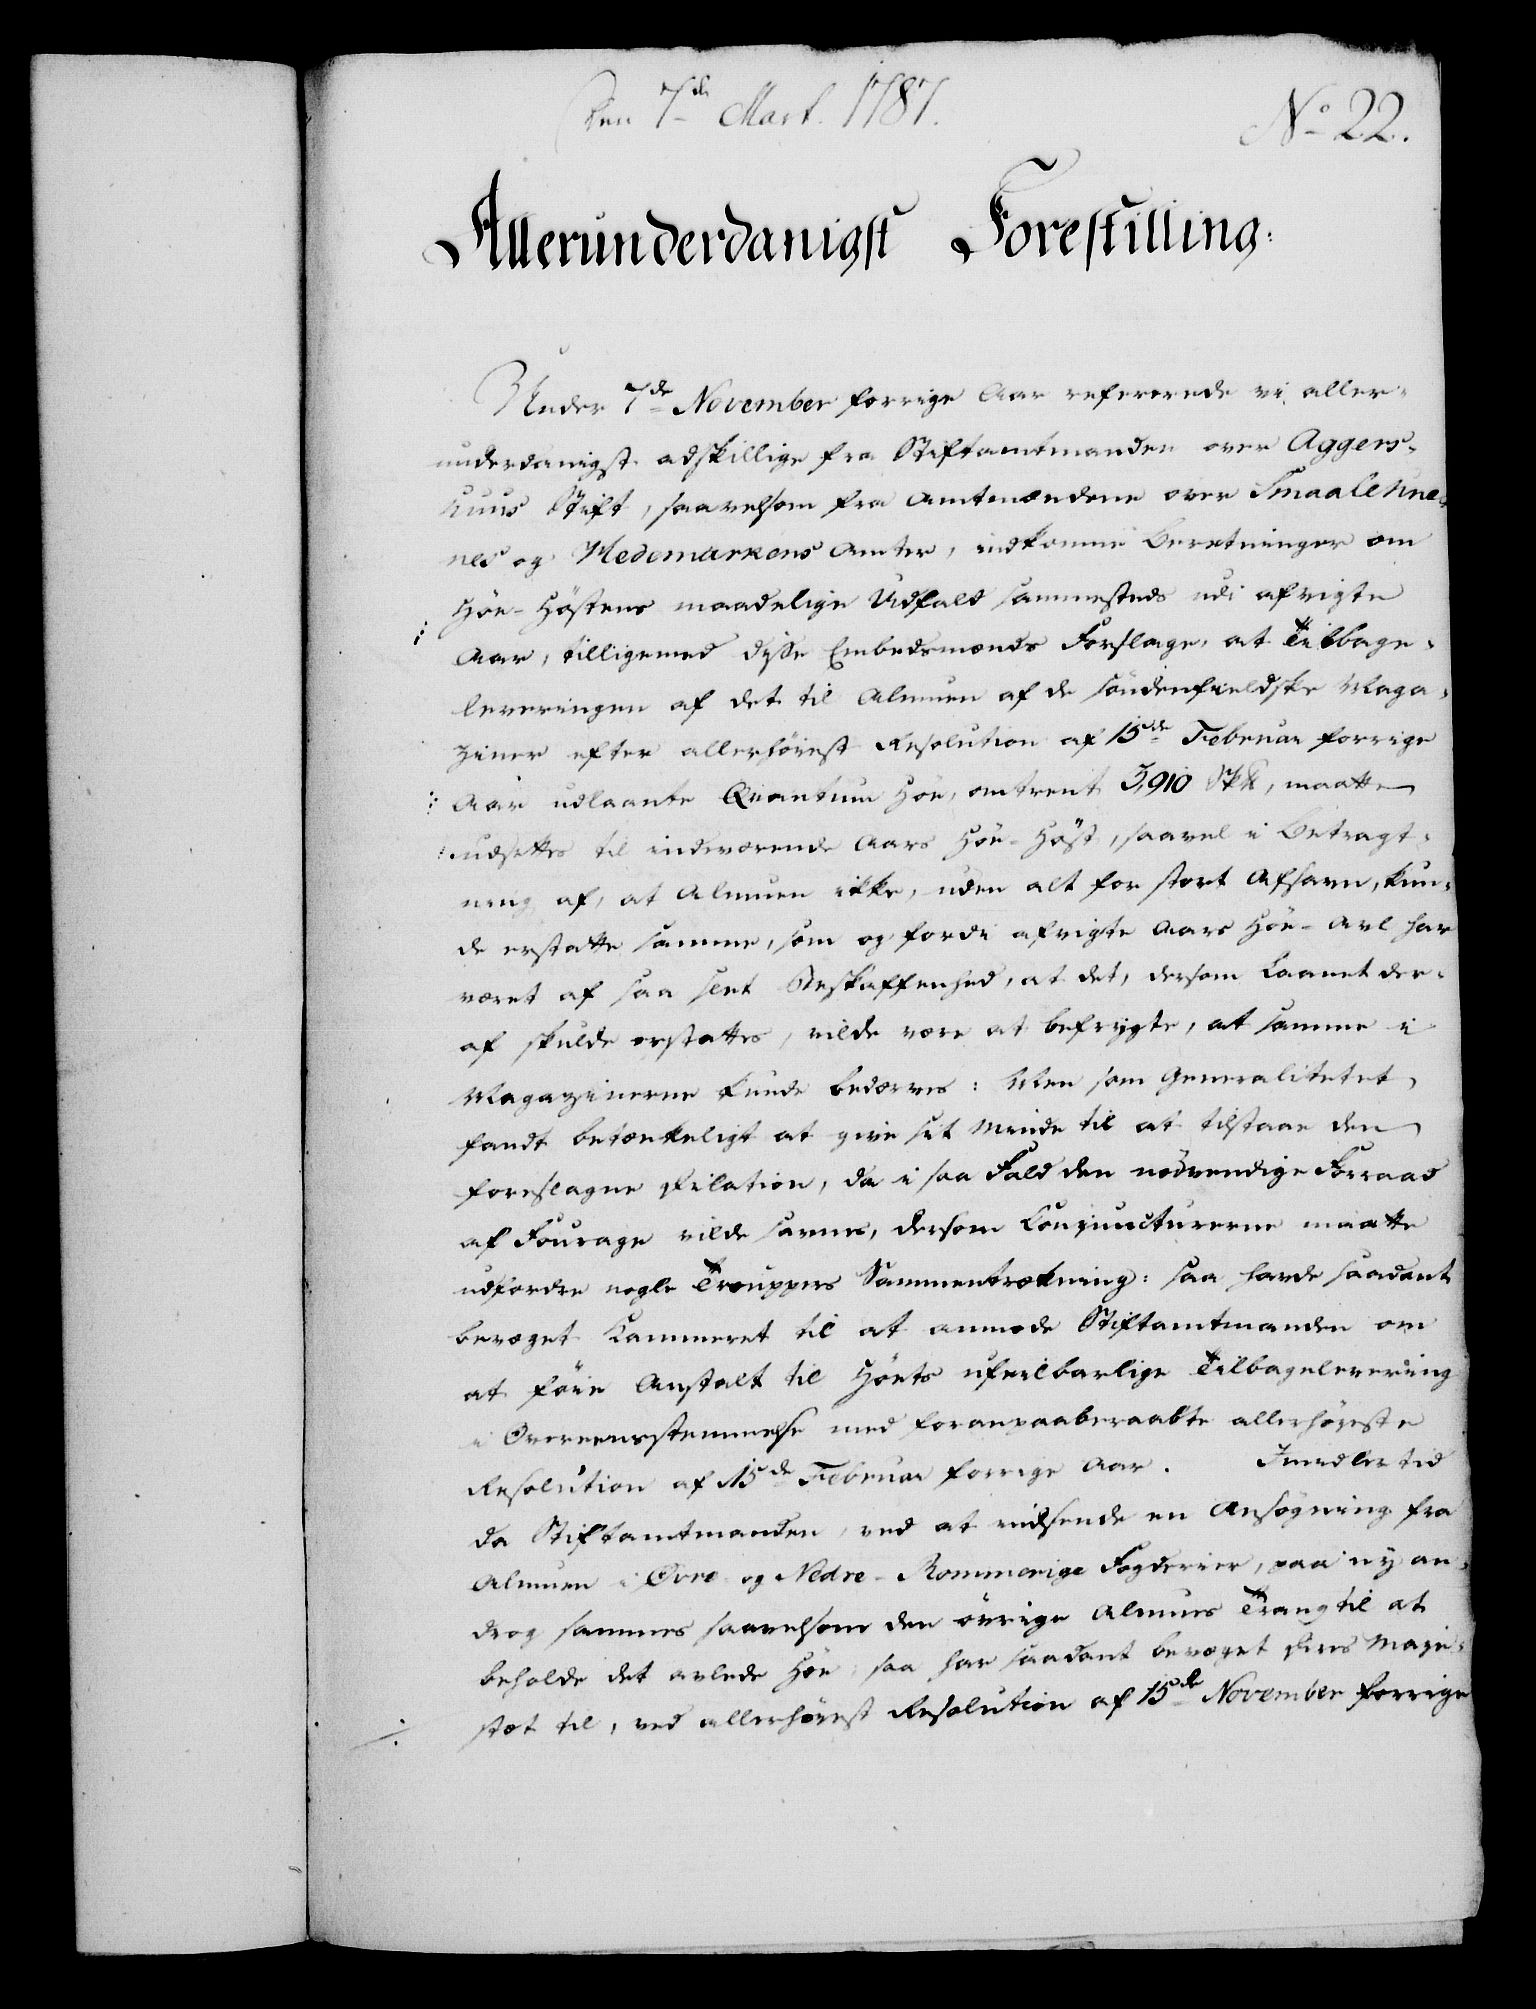 Den 7de Mart. 1787.
No 22.
Allerunderdanigst Forestilling:
Under 7de November forrige Aar refererede vi aller-
underdanigst adskillige fra Stiftamtmanden over Aggers-
huus Stift, saavelsom fra Amtmændene over Smaalehne-
nes og Hedemarkens Amter, indkomne Beretninger om
Höe-Höstens maadelige Udfald sammesteds udi afvigte
Aar, tilligemed disse Embedsmænds Forslage, at Tilbage-
leveringen af det til Almuen af de söndenfieldske Maga-
ziner efter allerhöiest Resolution af 15de Februar forrige
Aar udlaante Qvantum Höe, omtrent 5,910 Sk℔, maatte
udsættes til indeværende Aars Höe-Höst, saavel i Betragt-
ning af, at Almuen ikke, uden alt for stort Afsavn, kun-
de erstatte samme, som og fordi afvigte Aars Höe-Avl har
været af saa slet Beskaffenhed, at det, dersom Laanet der-
af skulde erstattes, vilde være at befrygte, at samme i
Magazinerne kunde bedærves: Men som Generalitetet
fandt betænkeligt at give sit Minde til at tilstaae den
foreslagne Dilation, da i saa Fald den nödvendige Forraad
af Fourage vilde savnes, dersom Conjuncturerne maatte
udfordre nogle Trouppers Sammentrækning: saa havde saadant
bevæget Kammeret til at anmode Stiftamtmanden om
at föie Anstalt til Höets ufeilbarlige Tilbagelevering
i Overeensstemmelse med foranpaaberaabte allerhöieste
Resolution af 15de Februar forrige Aar. Imidlertid
da Stiftamtmanden, ved at indsende en Ansögning fra
Almuen i Övre og Nedre-Rommerige Fogderier, paa ny an-
drog sammes saavelsom den övrige Almues Trang til at
beholde det avlede Höe, saa har saadant bevæget Deres Maje-
stæt til, ved allerhöiest Resolution af 15de November forrige